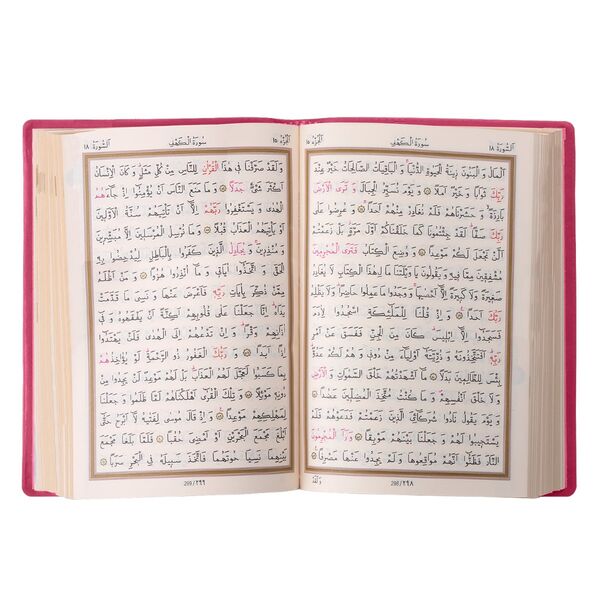 اَلسُّورَةُ ١٨ سُورَةُ الْكَهْفِ اَلْجُزْءُ ١٥
اَلْمَالُ وَ الْبَنُونَ زِينَةُ الْحَيٰوةِ الدُّنْيَا وَ الْبَاقِيَاتُ الصَّالِحَاتُ خَيْرٌ عِنْدَ
رَبِّكَ ثَوَابًا وَ خَيْرٌ اَمَلًا وَ يَوْمَ نُسَيِّرُ الْجِبَالَ وَ تَرَى الْاَرْضَ
بَارِزَةً وَ حَشَرْنَاهُمْ فَلَمْ نُغَادِرْ مِنْهُمْ اَحَدًا وَ عُرِضُوا عَلٰى
رَبِّكَ صَفًّا لَقَدْ جِئْتُمُونَا كَمَا خَلَقْنَاكُمْ اَوَّلَ مَرَّةٍ بَلْ زَعَمْتُمْ
اَلَّنْ نَجْعَلَ لَكُمْ مَوْعِدًا وَ وُضِعَ الْكِتَابُ فَتَرَى الْمُجْرِمِينَ
مُشْفِقِينَ مِمَّا فِيهِ وَ يَقُولُونَ يَا وَيْلَتَنَا مَالِ هٰذَا الْكِتَابِ لَا يُغَادِرُ
صَغِيرَةً وَ لَا كَبِيرَةً اِلَّا اَحْصٰيهَا وَ وَجَدُوا مَا عَمِلُوا حَاضِرًا وَ لَا يَظْلِمُ
رَبُّكَ اَحَدًا وَ اِذْ قُلْنَا لِلْمَلٰئِكَةِ اسْجُدُوا لِاٰدَمَ
فَسَجَدُوا اِلَّا اِبْلِيسَ كَانَ مِنَ الْجِنِّ فَفَسَقَ عَنْ اَمْرِ
رَبِّهِ اَفَتَتَّخِذُونَهُ وَ ذُرِّيَّتَهُ اَوْلِيَاءَ مِنْ دُونِي وَ هُمْ لَكُمْ عَدُوٌّ
بِئْسَ لِلظَّالِمِينَ بَدَلًا مَا اَشْهَدْتُهُمْ خَلْقَ السَّمٰوَاتِ وَ الْاَرْضِ
وَ لَا خَلْقَ اَنْفُسِهِمْ وَ مَا كُنْتُ مُتَّخِذَ الْمُضِلِّينَ عَضُدًا
وَ يَوْمَ يَقُولُ نَادُوا شُرَكَائِيَ الَّذِينَ زَعَمْتُمْ فَدَعَوْهُمْ فَلَمْ
يَسْتَجِيبُوا لَهُمْ وَ جَعَلْنَا بَيْنَهُمْ مَوْبِقًا وَ رَاَ الْمُجْرِمُونَ
النَّارَ فَظَنُّوا اَنَّهُمْ مُوَاقِعُوهَا وَ لَمْ يَجِدُوا عَنْهَا مَصْرِفًا
298/٢٩٨
وَ لَقَدْ
اَلْجُزْءُ ١٥ سُورَةُ الْكَهْفِ اَلسُّورَةُ ١٨
وَ لَقَدْ صَرَّفْنَا فِي هٰذَا الْقُرْاٰنِ لِلنَّاسِ مِنْ كُلِّ مَثَلٍ وَ كَانَ الْاِنْسَانُ
اَكْثَرَ شَيْءٍ جَدَلًا وَ مَا مَنَعَ النَّاسَ اَنْ يُؤْمِنُوا اِذْ جَاءَهُمُ
الْهُدٰى وَ يَسْتَغْفِرُوا رَبَّهُمْ اِلَّا اَنْ تَأْتِيَهُمْ سُنَّةُ الْاَوَّلِينَ
اَوْ يَأْتِيَهُمُ الْعَذَابُ قُبُلًا وَ مَا نُرْسِلُ الْمُرْسَلِينَ اِلَّا مُبَشِّرِينَ
وَ مُنْذِرِينَ وَ يُجَادِلُ الَّذِينَ كَفَرُوا بِالْبَاطِلِ لِيُدْحِضُوا بِهِ
الْحَقَّ وَ اتَّخَذُوا اٰيَاتِي وَ مَا اُنْذِرُوا هُزُوًا وَ مَنْ اَظْلَمُ
مِمَّنْ ذُكِّرَ بِاٰيَاتِ رَبِّهِ فَاَعْرَضَ عَنْهَا وَ نَسِيَ مَا قَدَّمَتْ
يَدَاهُ اِنَّا جَعَلْنَا عَلٰى قُلُوبِهِمْ اَكِنَّةً اَنْ يَفْقَهُوهُ وَ فِي
اٰذَانِهِمْ وَقْرًا وَ اِنْ تَدْعُهُمْ اِلَى الْهُدٰى فَلَنْ يَهْتَدُوا
اِذًا اَبَدًا وَ رَبُّكَ الْغَفُورُ ذُو الرَّحْمَةِ لَوْ يُؤَاخِذُهُمْ
بِمَا كَسَبُوا لَعَجَّلَ لَهُمُ الْعَذَابَ بَلْ لَهُمْ مَوْعِدٌ لَنْ يَجِدُوا مِنْ
دُونِهِ مَوْئِلًا وَ تِلْكَ الْقُرٰى اَهْلَكْنَاهُمْ لَمَّا ظَلَمُوا وَ جَعَلْنَا
لِمَهْلِكِهِمْ مَوْعِدًا وَ اِذْ قَالَ مُوسٰى لِفَتٰيهُ لَا اَبْرَحُ حَتّٰى
اَبْلُغَ مَجْمَعَ الْبَحْرَيْنِ اَوْ اَمْضِيَ حُقُبًا فَلَمَّا بَلَغَا مَجْمَعَ
بَيْنِهِمَا نَسِيَا حُوتَهُمَا فَاتَّخَذَ سَبِيلَهُ فِي الْبَحْرِ سَرَبًا
299/٢٩٩